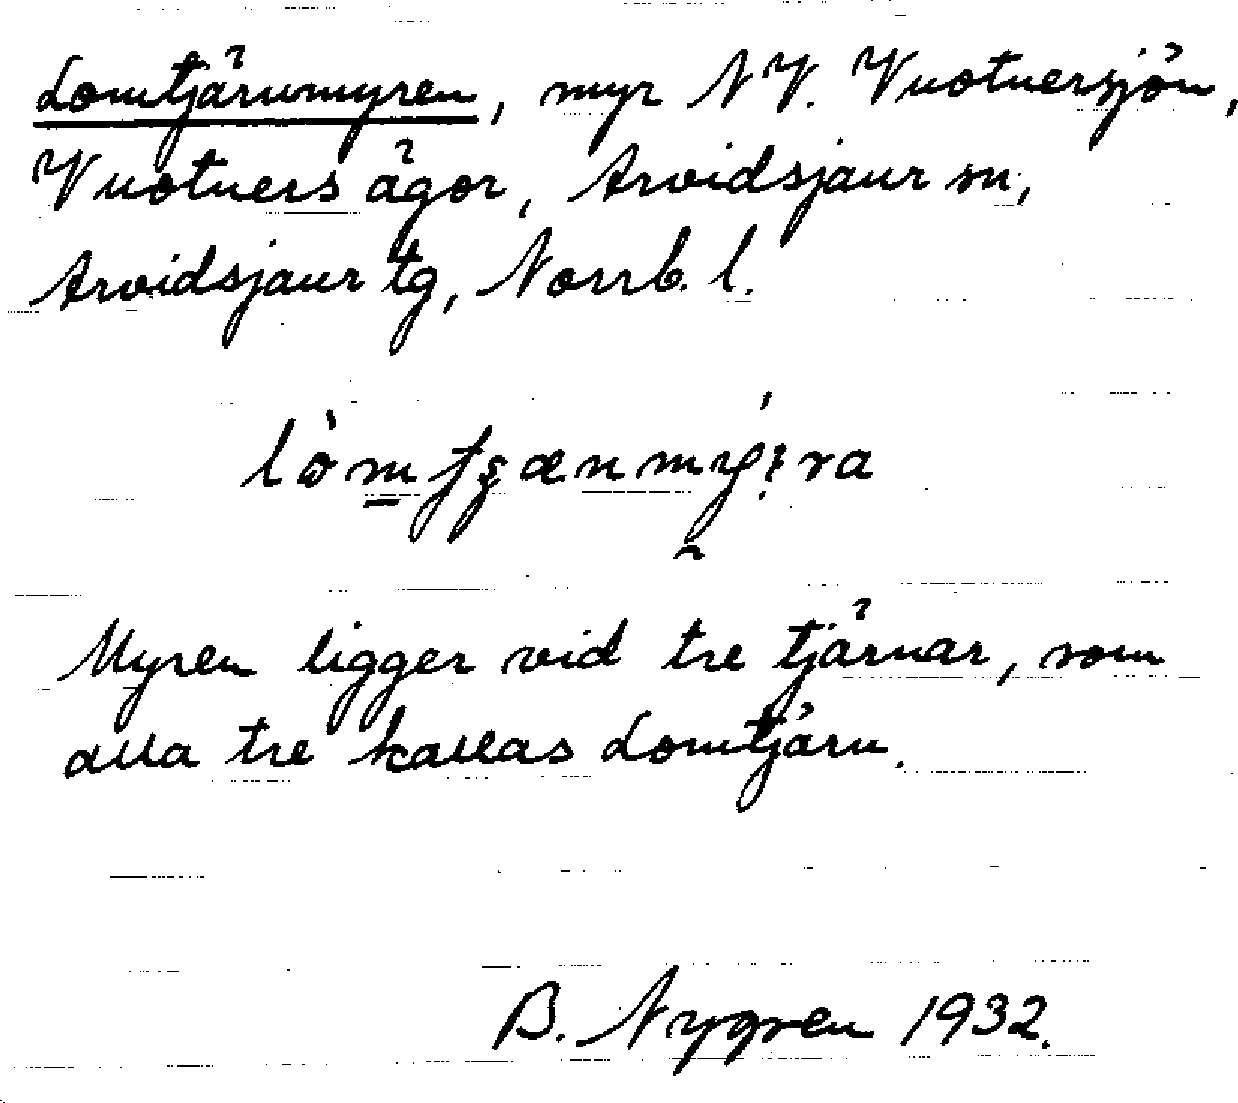 Lomtjärnmyren, myr NV. Vuotnersjön,
Vuotners ägor, Arvidsjaur sn,
Arvidsjaur tg, Norrb. l.
Myren ligger vid tre tjärnar, som
alla tre kallas Lomtjärn.
B. Nygren 1932.